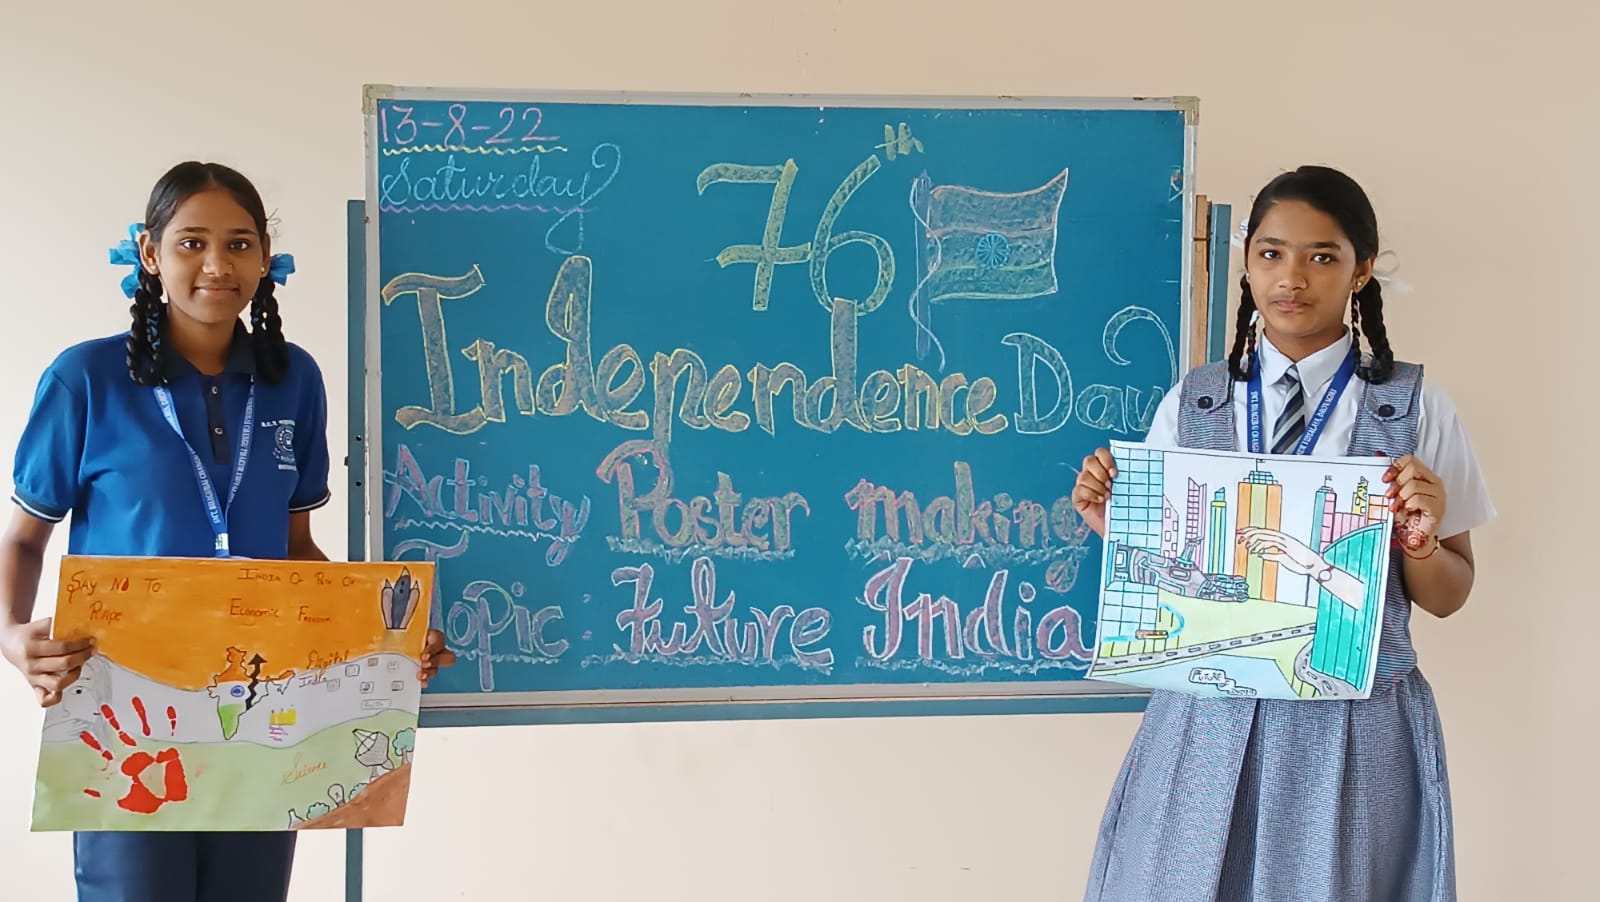 13-8-22
Saturday
76th
Independence Day
Activity Poster making
Topic : Future India
SAY NO TO
RAPE
INDIA ON PATH OF
ECONOMIC FREEDOM
Digital
India
Science
FUTURE